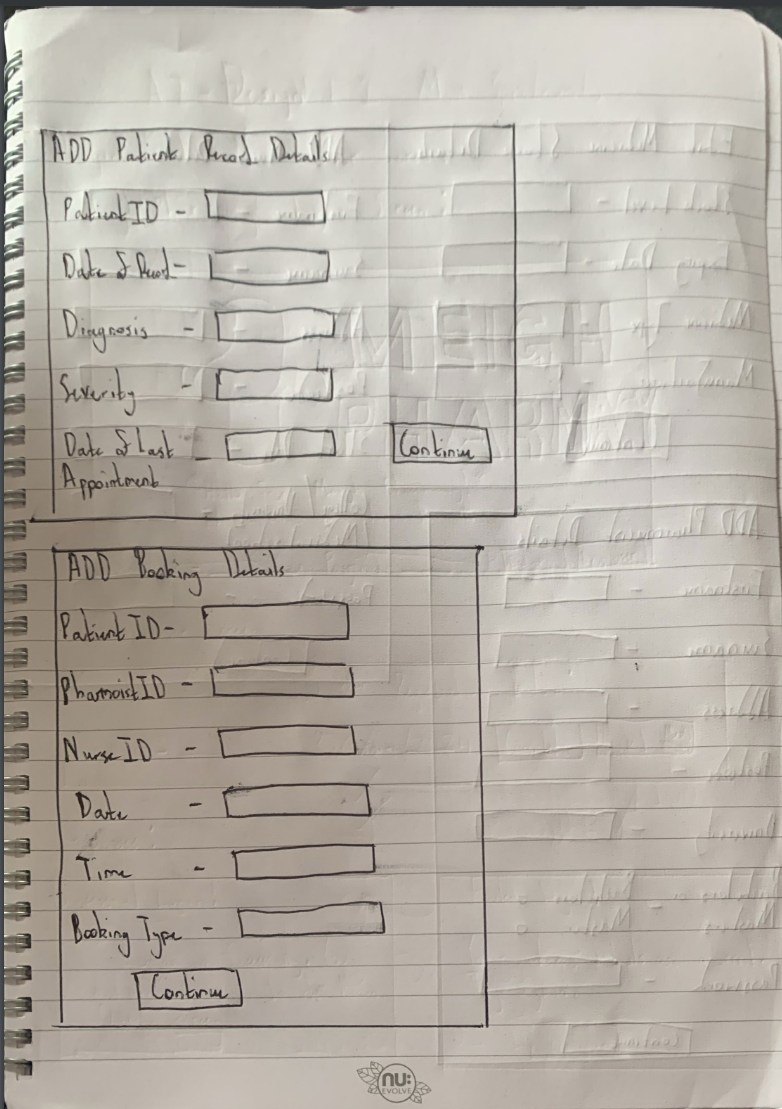 ADD Patient Record Details
Patient ID -
Date of Record -
Diagnosis -
Severity -
Date of Last -
Appointment
Continue
ADD Booking Details
Patient ID -
PharmcistID -
Nurse ID -
Date -
Time -
Booking Type -
Continue
nu:
EVOLVE